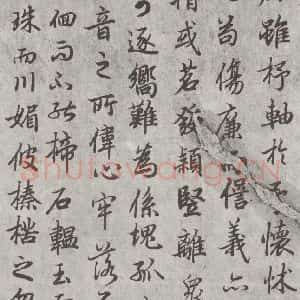 雖杼軸於予懷怵
苟傷廉而愆義亦
捐或苕發穎豎離衆
可逐嚮難為係塊孤
音之所緯心牢落
徊而不能揥石韞玉而
珠而川媚彼榛楛之勿
Shufawang.CN